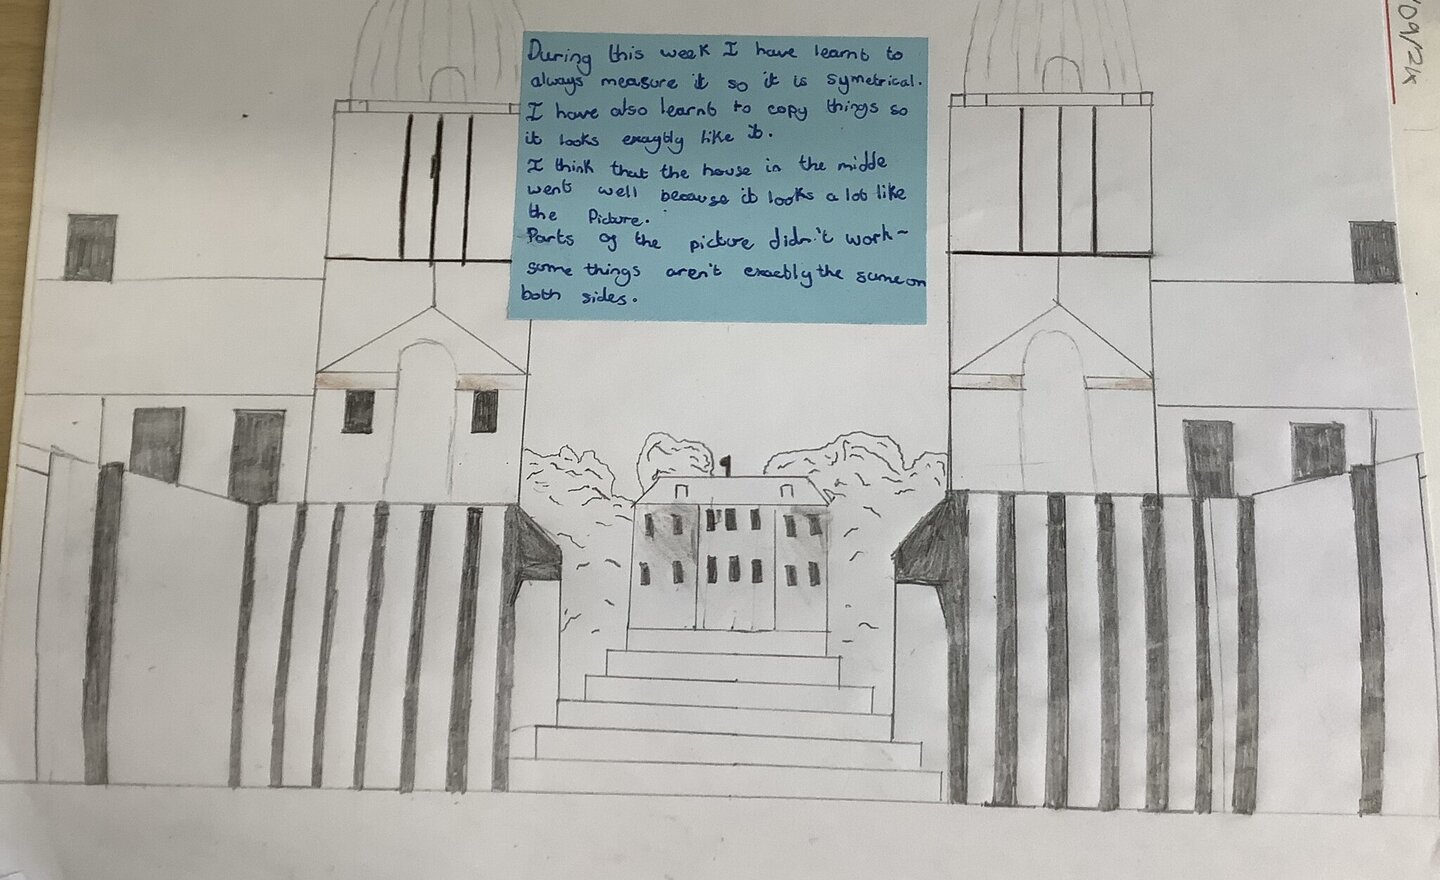 During this week I have learnt to
always measure it so it is symetrical.
I have also learnt to copy things so
it looks exaytly like it.
I think that the house in the midde
went well because it looks a lot like
the Picture.
Parts of the picture didn't work~
some things aren't exactly the same on
both sides.
/09/24